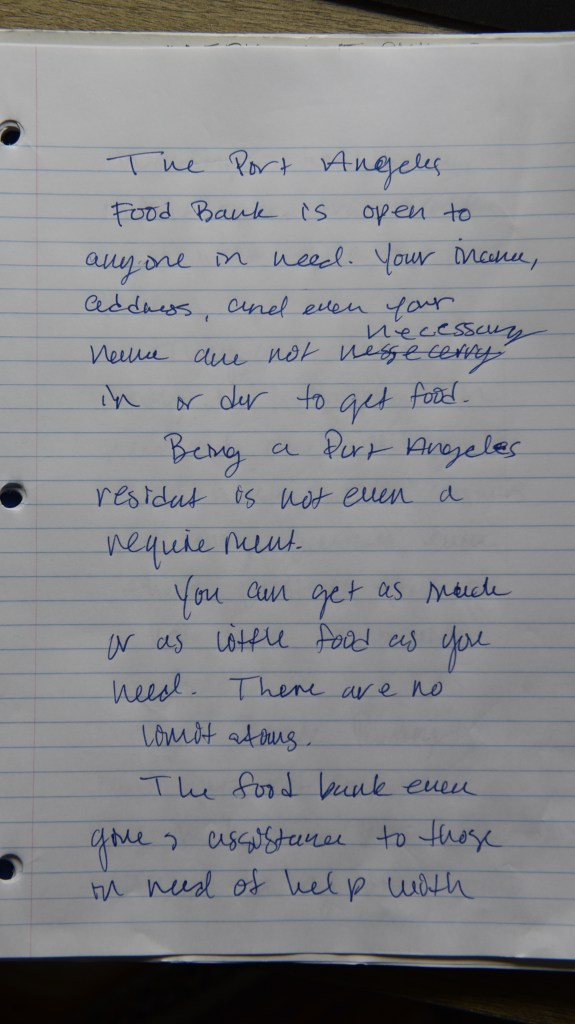 The Port Angeles
Food Bank is open to
anyone in need. Your income,
address, and even your
necessary
name are not nessecerry
in order to get food.
Being a Port Angeles
resident is not even a
requirement.
You can get as much
or as little food as you
need. There are no
limitations.
The food bank even
gives assistance to those
in need of help with